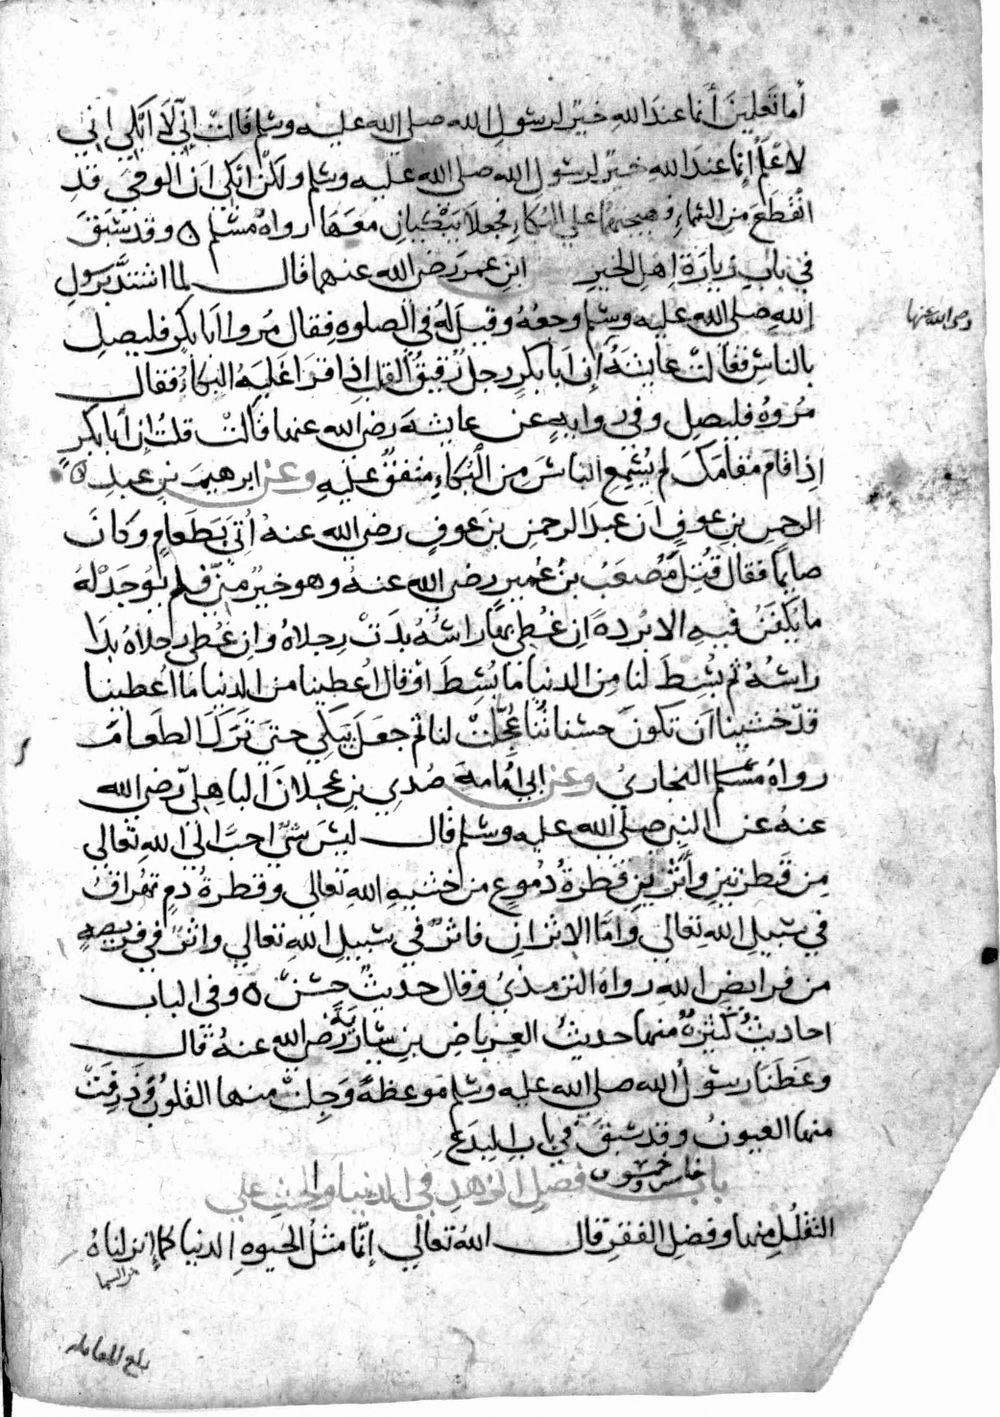 أما تعلمين أنما عند الله خير لرسول الله صلى الله عليه وسلم قالت إني لا أبكي اني
لا علم إنما عند الله خير لرسول الله صلى الله عليه وسلم ولكن ابكي ان الوحي قد
انقطع من السماء فهيجتهما علي البكاء فجعلا يبكيان معها رواه مسلم ه وقد سبق
في باب زيارة اهل الخير ابن عمر رضي الله عنهما قال لما اشتد برسول
الله صلى الله عليه وسلم وجعه وقيل له في الصلوه فقال مروا ابا بكر فليصل
بالناس فقالت عايشة إن ابا بكر رجل رقيق القلب اذا قرا غلبه البكاء فقال
رضي الله عنها
مروه فليصل وفي روايه عن عايشة رضي الله عنها قالت قلت إن أبا بكر
اذا قام مقامك لم يسمع الناس من البكاء متفق عليه وعن ابرهيم بن عبد ه
الرحمن بن عوف ان عبد الرحمن بن عوف رضي الله عنه أتي بطعام وكان
صايما فقال قتل مصعب بن عمير رضي الله عنه وهو خير مني فلم يوجد له
ما يكفن فيه الا بردة ان غطي بها راسه بدت رجلاه وان غطي رجلاه بدا
راسه ثم بسط لنا من الدنيا ما بسط او قال اعطينا من الدنيا ما اعطينا
قد خشينا ان تكون حسناتنا عجلت لنا ثم جعل يبكي حتى ترك الطعام
رواه مسلم البخاري وعن ابي امامة صدي بن عجلان الباهلي رضي الله
عنه عن النبي صلى الله عليه وسلم قال ليس شئ احب الى الله تعالي
من قطرتين وأثرين قطرة دموع من خشيه الله تعالي وقطرة دم تهراق
في سبيل الله تعالي واما الاثران فاثر في سبيل الله تعالي واثر في فريضه
من فرايض الله رواه الترمذي وقال حديث حسن ه وفي الباب
احاديث كثيرة منها حديث العرباض بن سارية رضي الله عنه قال
وعظنا رسول الله صلى الله عليه وسلم موعظة وجلت منها القلوب وذرفت
منها العيون وقد سبق في باب البدع
باب خامس وخمسون فضل الزهد في الدنيا والحث علي
التقلل منها وفضل الفقر قال الله تعالي إنما مثل الحيوه الدنيا كما إنزلناه
من السما
بلغ المقابله